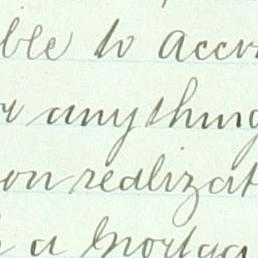 ble to accru
r anything
on realizat
a Mortga